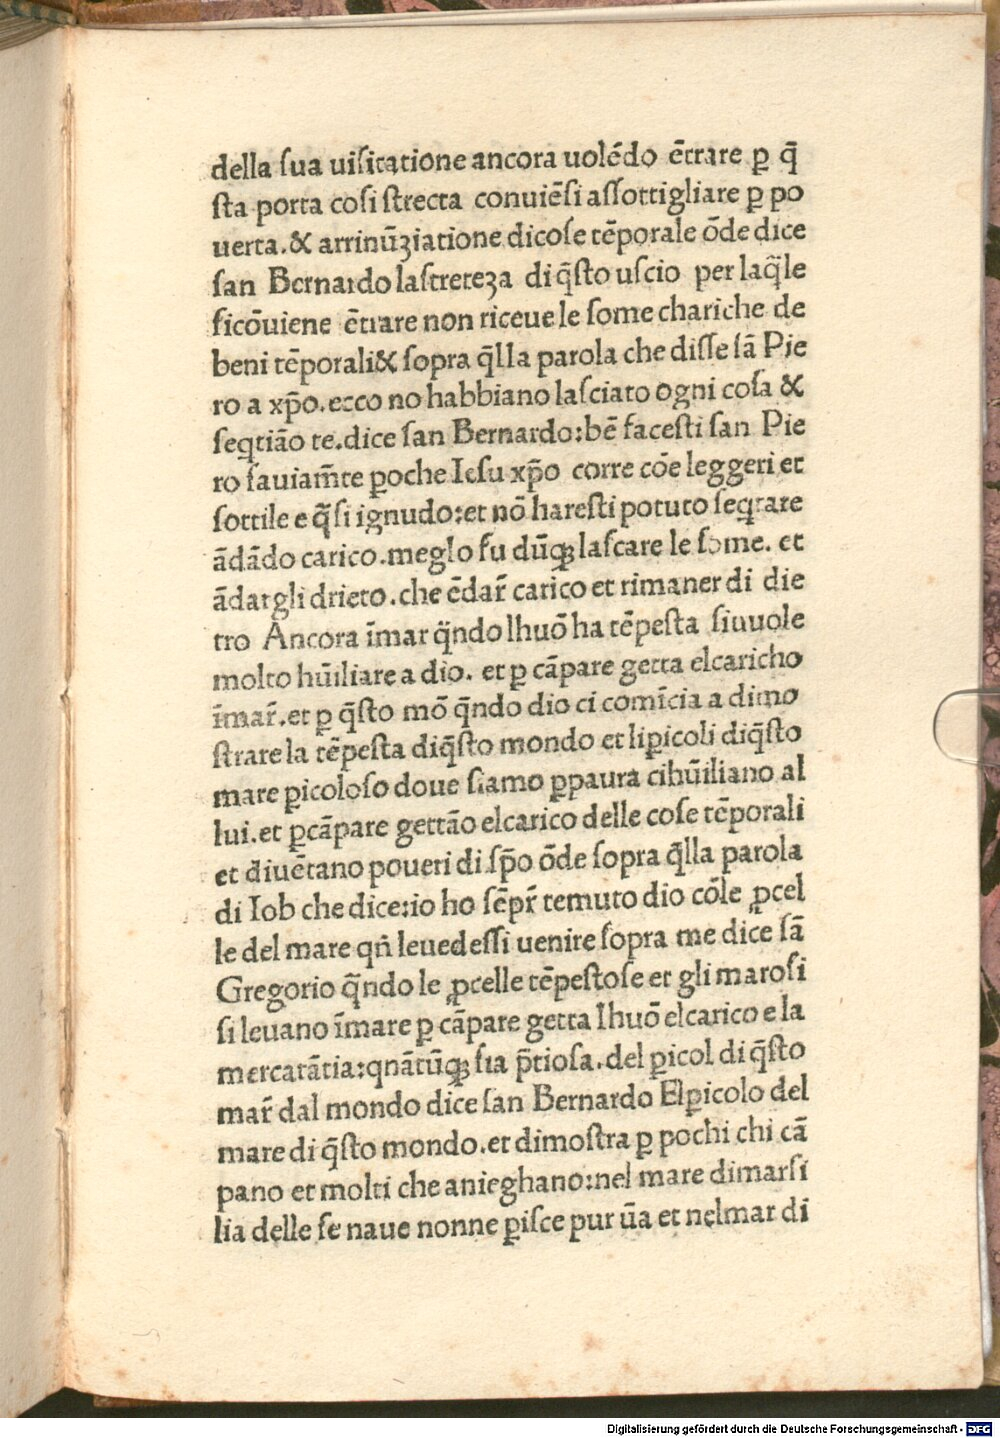 della ſua uiſitatione ancora uolēdo ētrare ꝑ q̄
ſta porta coſi ſtrecta conuiēſi aſſottigliare ꝑ po
uerta.& arrinūȝiatione dicoſe tēporale ōde dice
ſan Bernardo laſtreteȝa di q̄ſto uſcio per laq̄le
ſicōuiene ētrare non riceue le ſome chariche de
beni tēporali& ſopra q̄lla parola che diſſe ſā Pie
ro a xp̄o.ecco no habbiano laſciato ogni coſa &
ſeqtiāo te.dice ſan Bernardo:bē faceſti ſan Pie
ro ſauiam̄te ꝑoche Ieſu xp̄o corre cōe leggeri et
ſottile e q̄ſi ignudo:et nō hareſti potuto ſeqtare
ādādo carico.meglo fu dūqꝫ laſcare le ſome. et
ādargli drieto.che ēdar̄ carico et rimaner di die
tro Ancora īmar q̄ndo lhuō ha tēpeſta ſiuuole
molto hūiliare a dio. et ꝑ cāpare getta elcaricho
īmar̄.et ꝑ q̄ſto mō q̄ndo dio ci comīcia a dimo
ſtrare la tēpeſta diq̄ſto mondo et liꝑicoli diq̄ſto
mare ꝑicoloſo doue ſiamo ꝑpaura cihūiliano al
lui.et ꝑcāpare gettāo elcarico delle coſe tēporali
et diuētano poueri di ſp̄o ōde ſopra q̄lla parola
di Iob che dice:io ho ſēpr̄ temuto dio cōle ꝓcel
le del mare qn̄ leuedeſſi uenire ſopra me dice ſā
Gregorio q̄ndo le ꝓcelle tēpeſtoſe et gli maroſi
ſi leuano īmare ꝑ cāpare getta lhuō elcarico e la
mercatātia:qnātūqꝫ ſia p̄tioſa.del ꝑicol di q̄ſto
mar̄ dal mondo dice ſan Bernardo Elꝑicolo del
mare di q̄ſto mondo.et dimoſtra ꝑ pochi chi cā
pano et molti che anieghano:nel mare dimarſi
lia delle ſe naue nonne ꝑiſce pur ūa et nelmar di
Digitalisierung gefördert durch die Deutsche Forschungsgemeinschaft - DFG